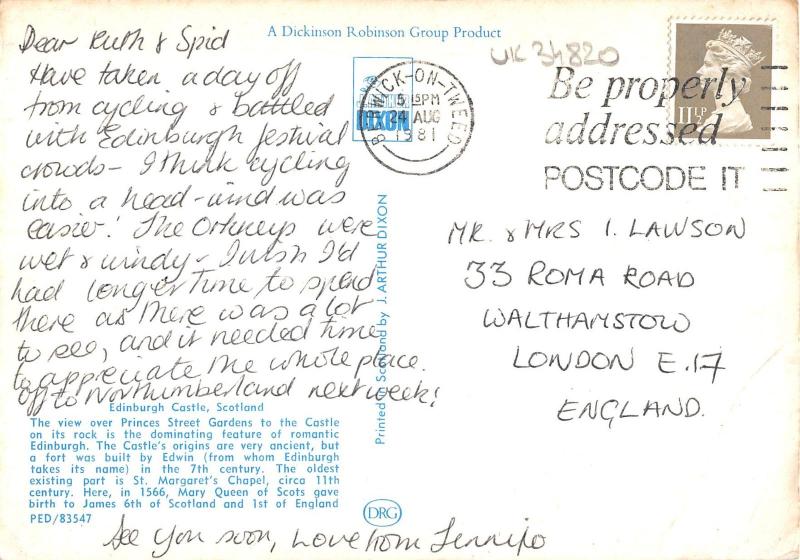 A Dickinson Robinson Group Product
UK 34820
Dear Ruth & Spid
Have taken a day off
from cycling & battled
with Edinburgh festival
crowds - I think cycling
into a head-wind was
easier! The Orkneys were
wet & windy - I wish I'd
had longer time to spend
there as there was a lot
to see, and it needed time
to appreciate the whole place.
Off to Northumberland next week!
Edinburgh Castle, Scotland
The view over Princes Street Gardens to the Castle
on its rock is the dominating feature of romantic
Edinburgh. The Castle's origins are very ancient, but
a fort was built by Edwin (from whom Edinburgh
takes its name) in the 7th century. The oldest
existing part is St. Margaret's Chapel, circa 11th
century. Here, in 1566, Mary Queen of Scots gave
birth to James 6th of Scotland and 1st of England
PED/83547
See you soon, Love from
DIXON
Printed in Scotland by J. ARTHUR DIXON
DRG
BERWICK-ON-TWEED
5 15PM
24 AUG
1981
Be properly
addressed
POSTCODE IT
11½P
MR. & MRS I. LAWSON
33 ROMA ROAD
WALTHAMSTOW
LONDON E.17
ENGLAND.